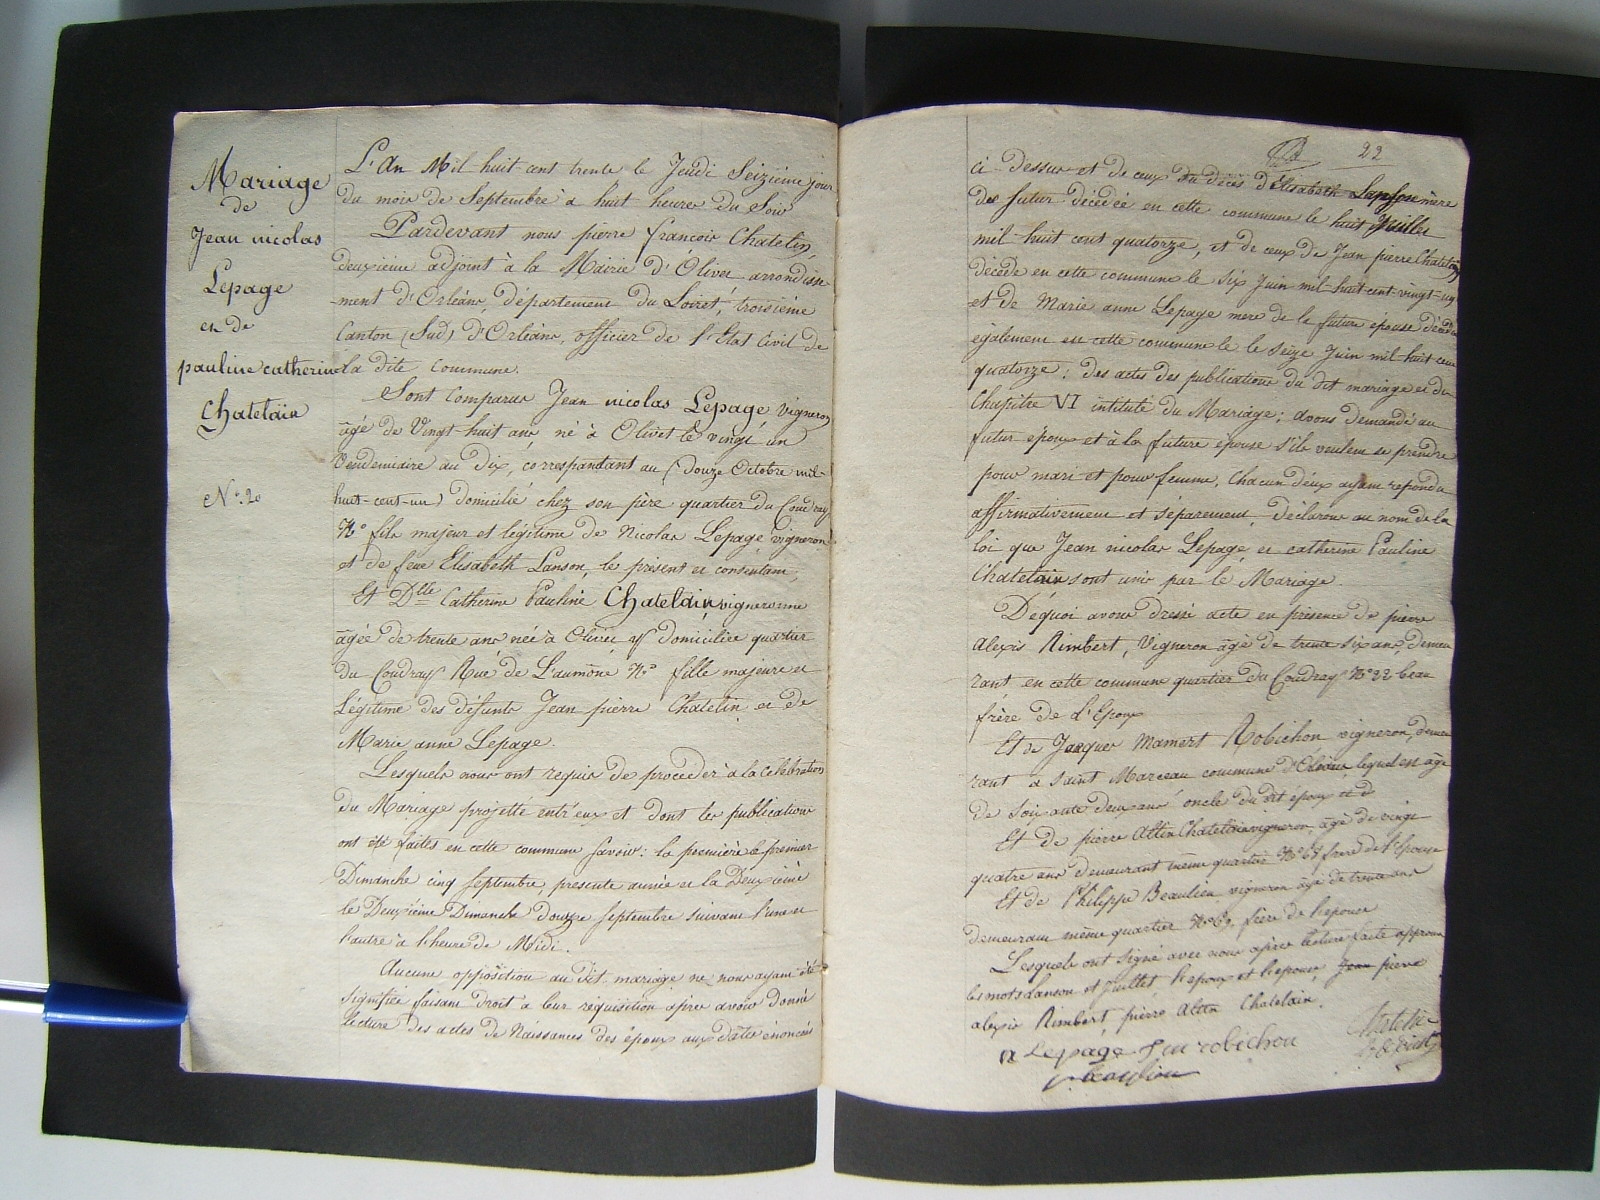 Mariage
de
Jean nicolas
Lepage
et de
pauline catherine
Chatelain
N°. 20
L'An Mil huit cent trente le Jeudi Seizième jour
du mois de Septembre à huit heures du Soir
Pardevant nous pierre françois Chatelin,
deuxième adjoint à la Mairie d'Olivet arrondisse
-ment d'Orléans, département du Loiret, troisième
Canton (Sud) d'Orléans, officier de l'Etat Civil de
la dite Commune.
Sont Comparus Jean nicolas Lepage vigneron
âgé de Vingt-huit ans, né à Olivet le vingt un
Vendemiaire an Dix, correspondant au (Douze Octobre mil-
huit-cent-un) domicilié chez son père quartier du Coudray
N° fils majeur et légitime de Nicolas Lepage vigneron
et de feue Elisabeth Lanson, le présent et consentant,
Et Dlle Catherine Pauline Chatelain vigneronne
agée de trente ans née à Olivet y domiciliée quartier
du Coudray Rue de L'aumône N° fille majeure et
Légitime des défunts Jean pierre Chatelin et de
Marie anne Lepage.
Lesquels nous ont requis de procéder à la Célébration
du Mariage projetté entr'eux et dont les publications
ont été faites en cette commune Savoir: la première le premier
Dimanche cinq Septembre, presente année et la Deuxième
le Deuxième Dimanche douze Septembre suivant l'une et
l'autre à l'heure de Midi.
Aucune opposition au dit mariage ne nous ayant été
signifiée faisant Droit à leur réquisition après avoir donné
lecture des actes de Naissances des époux aux dates énoncées
22
ci dessus et de ceux du décès d'Elisabeth Lanson mère
du futur décédée en cette commune le huit Juillet
mil-huit cent quatorze, et de ceux de Jean pierre Chatelain
décédé en cette commune le Six Juin mil-huit-cent-vingt-un
et de Marie anne Lepage mère de la future épouse décédée
également en cette commune le le Seize Juin mil-huit cent
quatorze; des actes des publications du dit mariage et du
Chapitre VI intitulé du Mariage; avons demandé au
futur époux et à la future épouse s'ils veulent se prendre
pour mari et pour femme, Chacun d'eux ayant répondu
affirmativement et séparément, Déclarons au nom de la
loi que Jean nicolas Lepage et catherine Pauline
Chatelain sont unis par le Mariage.
De quoi avons dressé acte en présence de pierre
alexis Rimbert, Vigneron âgé de trente six ans, demeu
rant en cette commune quartier du Coudray N° 22 beau
frère de l'Epoux
Et de Jacques Mamert Robichon vigneron, demeu
rant à Saint Marceau commune d'Orléans lequel est âgé
de Soixante deux ans oncle du dit époux
Et de pierre Altin Chatelain vigneron, âgé de vingt
quatre ans demeurant même quartier N° 68 frère de l'Epouse
Et de Philippe Beaulieu vigneron âgé de trente ans
demeurant même quartier N° 69, frère de l'épouse
Lesquels ont signé avec nous après lecture faite approuvé
les mots Lanson et Juillet, l'époux et l'épouse Jean pierre
alexis Rimbert, pierre Altin Chatelain.
n Lepage J m robichon
p. Beaulieu